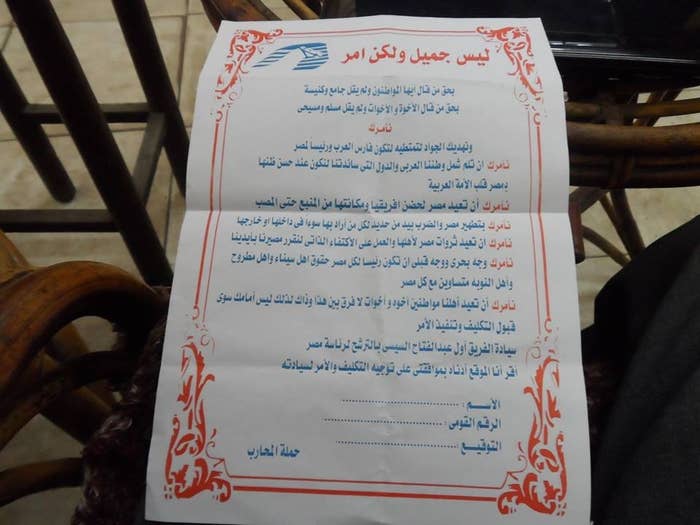 ليس جميل ولكن امر
بحق من قال ايها المواطنون ولم يقل جامع وكنيسة
بحق من قال الأخوة و الأخوات ولم يقل مسلم ومسيحى
نأمرك
ونهديك الجواد لتمتطيه لتكون فارس العرب ورئيسا لمصر
نأمرك ان تلم شمل وطننا العربى والدول التى ساندتنا لنكون عند حسن ظنها
دمصر قلب الأمة العربية
نأمرك أن تعيد مصر لحضن افريقيا ومكانتها من المنبع حتى المصب
نأمرك بتطهير مصر والضرب بيد من حديد لكل من أراد بها سوءا فى داخلها او خارجها
نأمرك ان تعيد ثروات مصر لاهلها والعمل على الأكتفاء الذاتى لنقرر مصيرنا بأيدينا
نأمرك وجه بحرى ووجه قبلى ان تكون رئيسا لكل مصر حقوق اهل سيناء واهل مطروح
وأهل النوبه متساوين مع كل مصر
نأمرك أن تعيد أهلنا مواطنين أخوه و أخوات لا فرق بين هذا وذاك لذلك ليس أمامك سوى
قبول التكليف وتنفيذ الأمر
سيادة الفريق أول عبدالفتاح السيسى بالترشح لرئاسة مصر
أقر أنا الموقع أدناه بموافقتى على توجيه التكليف والأمر لسيادته
الأســم : ..............................
الرقم القومى : ..............................
التوقيــع : ..............................
حملة المحارب